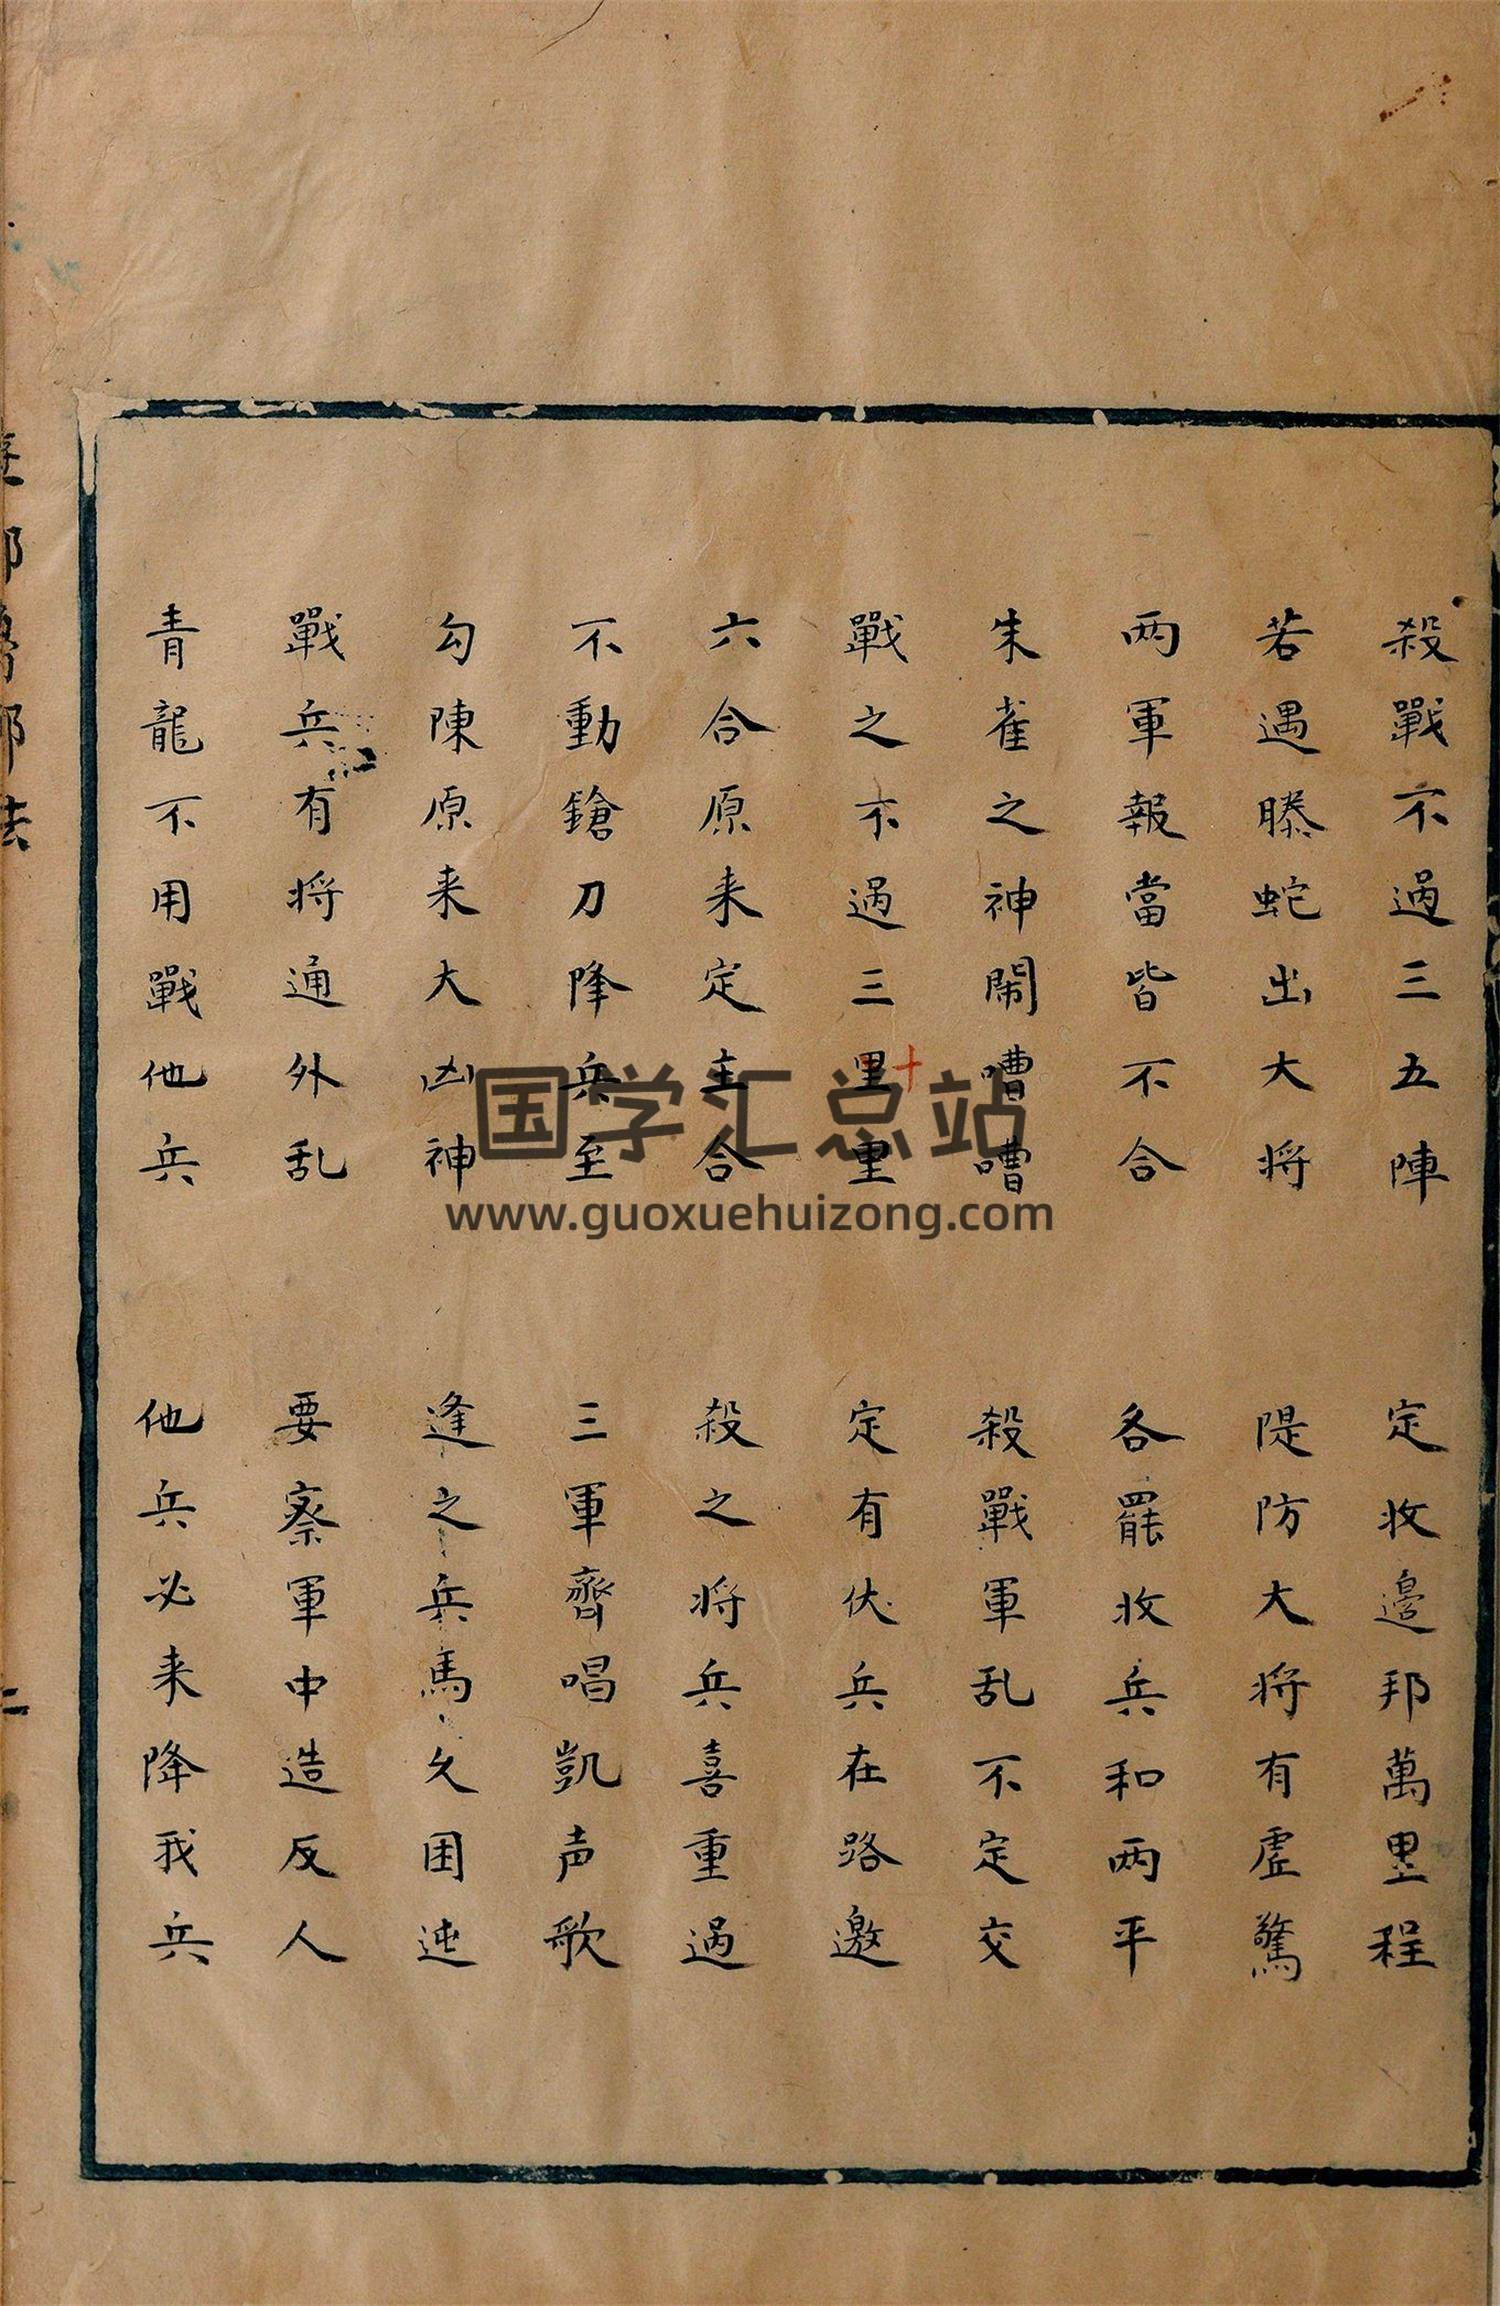 殺戰不過三五陣 定收邊邦萬里程
若遇螣蛇出大将 隄防大将有虛驚
两軍報當皆不合 各罷收兵和两平
朱雀之神鬧嘈嘈 殺戰軍乱不定交
戰之不過三里重 定有伏兵在路邀
十
六合原来定主合 殺之将兵喜重過
不動鎗刀降兵至 三軍齊唱凱声歌
勾陳原来大凶神 逢之兵馬久困迍
戰兵有将通外乱 要察軍中造反人
青龍不用戰他兵 他兵必来降我兵
法
二
国学汇总站
www.guoxuehuizong.com